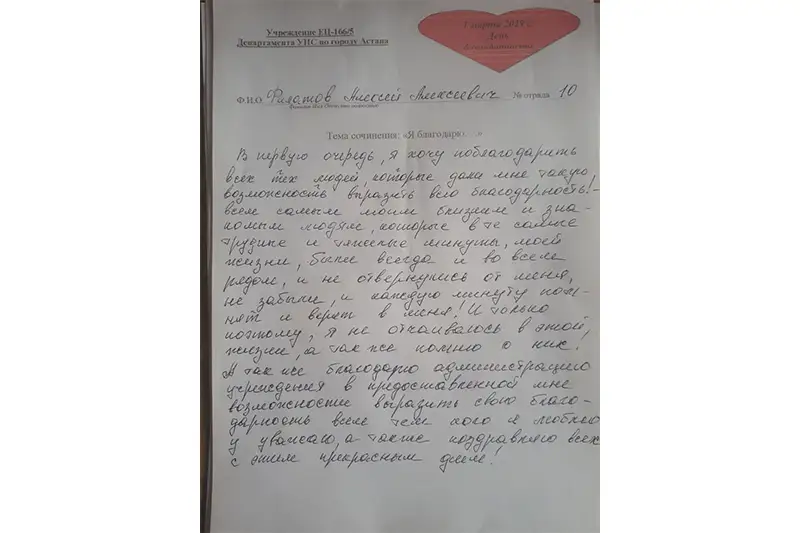 Учреждение ЕЦ-166/5
Департамента УИС по городу Астана
1 марта 2019 г.
День
Благодарности
Ф.И.О Филатов Алексей Алексеевич № отряда 10
Тема сочинения: «Я благодарю …»
В первую очередь, я хочу поблагодарить
всех тех людей, которые дали мне такую
возможность выразить всю благодарность!-
всем самым моим близким и зна-
комым людям, которые в те самые
трудные и тяжелые минуты, моей
жизни, были всегда и во всем
рядом, и не отвернулись от меня,
не забыли, и каждую минуту пом-
нят и верят в меня! И только
поэтому, я не отчаиваюсь в этой,
жизни, а так же помню о них!
А так же благодарю администрацию
учреждения в предоставленной мне
возможности выразить свою благо-
дарность всем тем кого я люблю
и уважаю, а также поздравляю всех
с этим прекрасным днем!